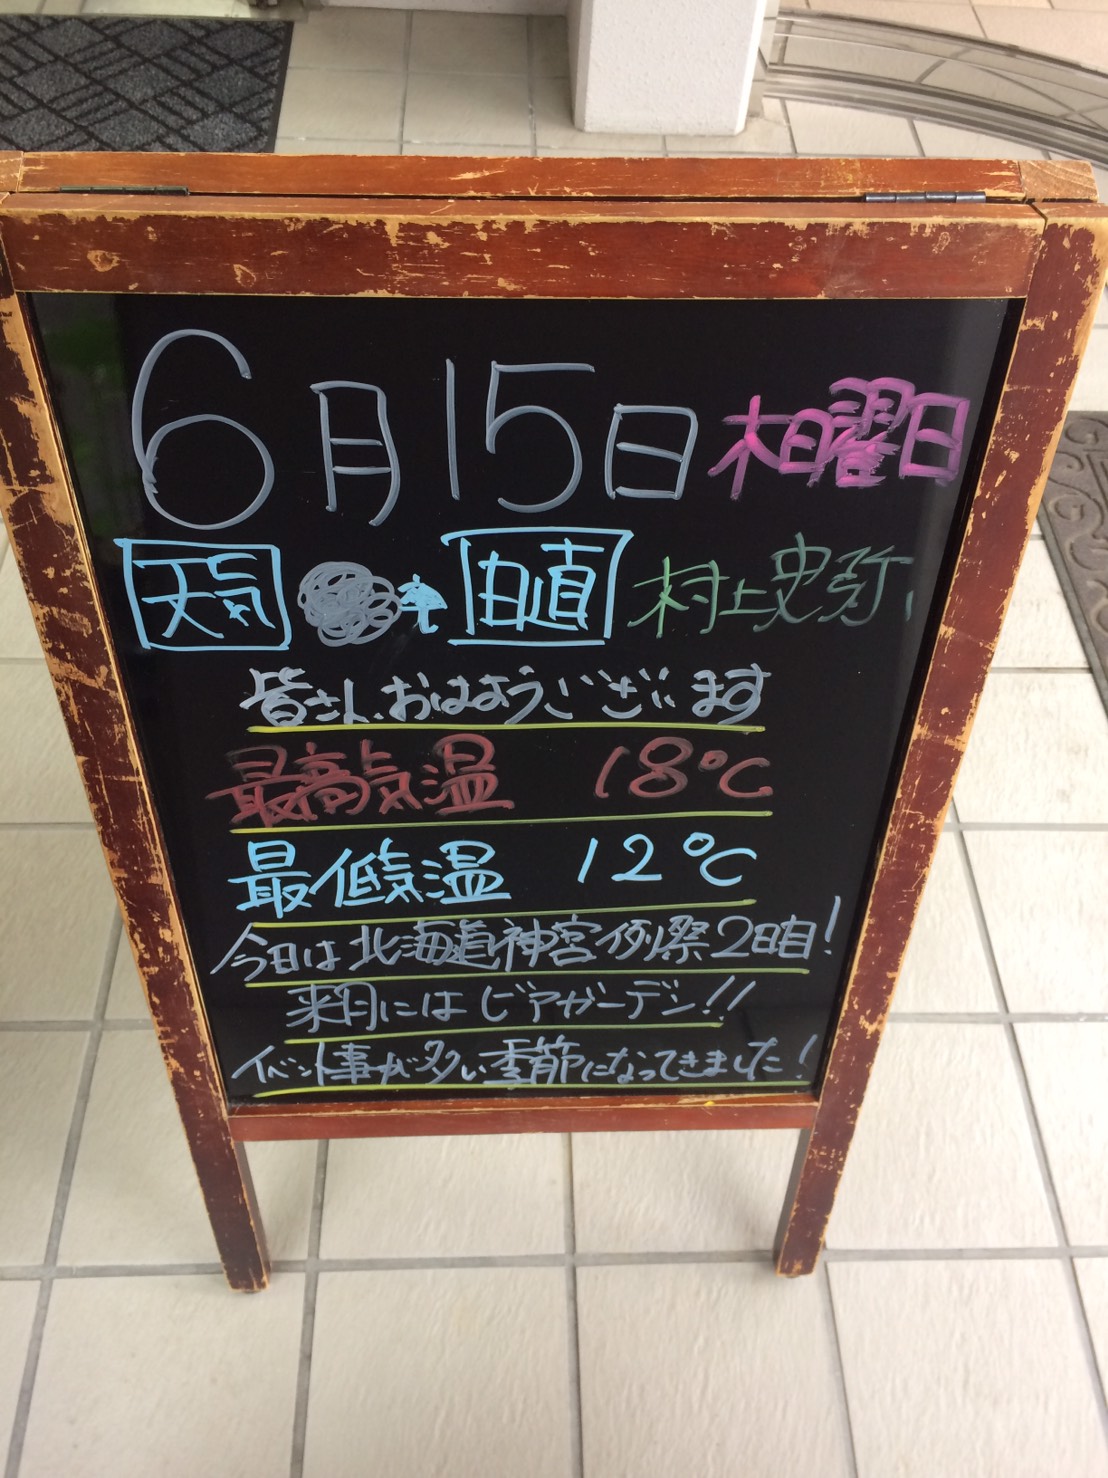 6月15日 木曜日
天気 日直 村上史弥
皆さん、おはようございます
最高気温 18℃
最低気温 12℃
今日は北海道神宮例祭2日目!
来月にはビアガーデン!!
イベント事が多い季節になってきました!